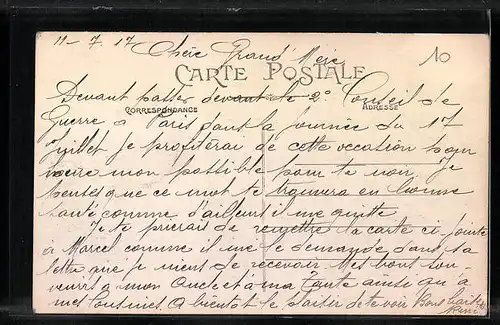 11-7.17 Chère Grand'Mère
10
CARTE POSTALE
CORRESPONDANCE
ADRESSE
Devant passer devant le 2e Conseil de
Guerre à Paris dans la journée du 17
Juillet je profiterai de cette occation pour
faire mon possible pour te voir. Je
pense que ce mot te trouvera en bonne
santé comme d'ailleurs il me quitte
Je te prierais de remettre la carte ci jointe
à Marcel comme il me le demande dans sa
lettre que je viens de recevoir Mes bons sou-
venirs à mon Oncle et à ma Tante ainsi qu'à
mes Cousines. A bientôt le plaisir de te voir Bons baisers